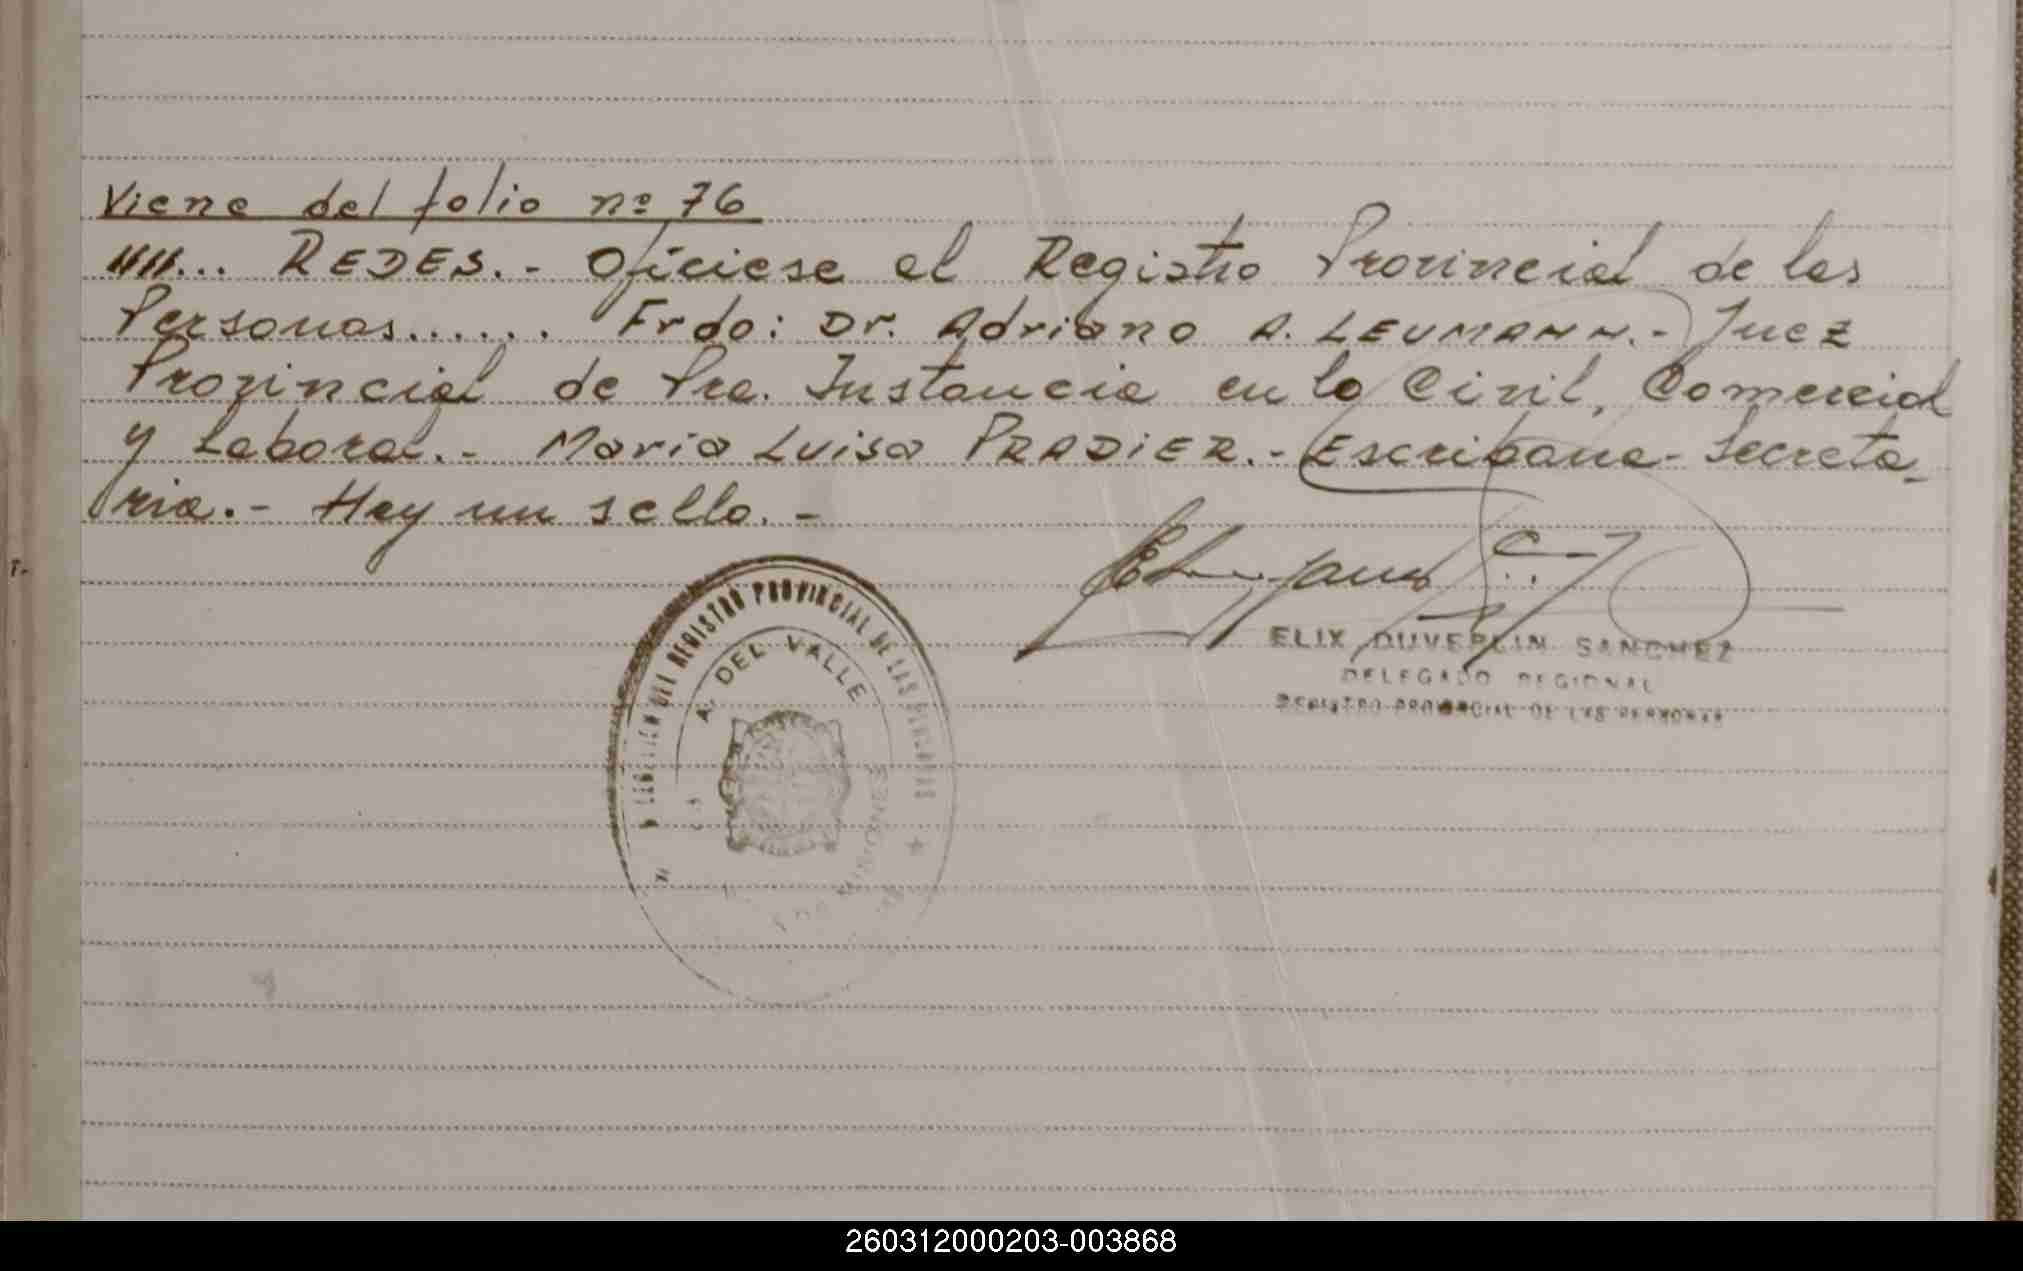 Viene del folio nº 76
////... REDES.- Ofíciese al Registro Provincial de las
Personas...... Frdo: Dr. Adriano A. LEUMANN.- Juez
Provincial de Pra. Instancia en lo Civil, Comercial
y Laboral.- Maria Luisa PRADIER.- Escribana- Secreta_
ria.- Hay un sello.-
DEL REGISTRO PROVINCIAL DE LAS PERSONAS
A. DEL VALLE
MISIONES
ELIX DUVERLIN SANCHEZ
DELEGADO REGIONAL
REGISTRO PROVINCIAL DE LAS PERSONAS
260312000203-003868